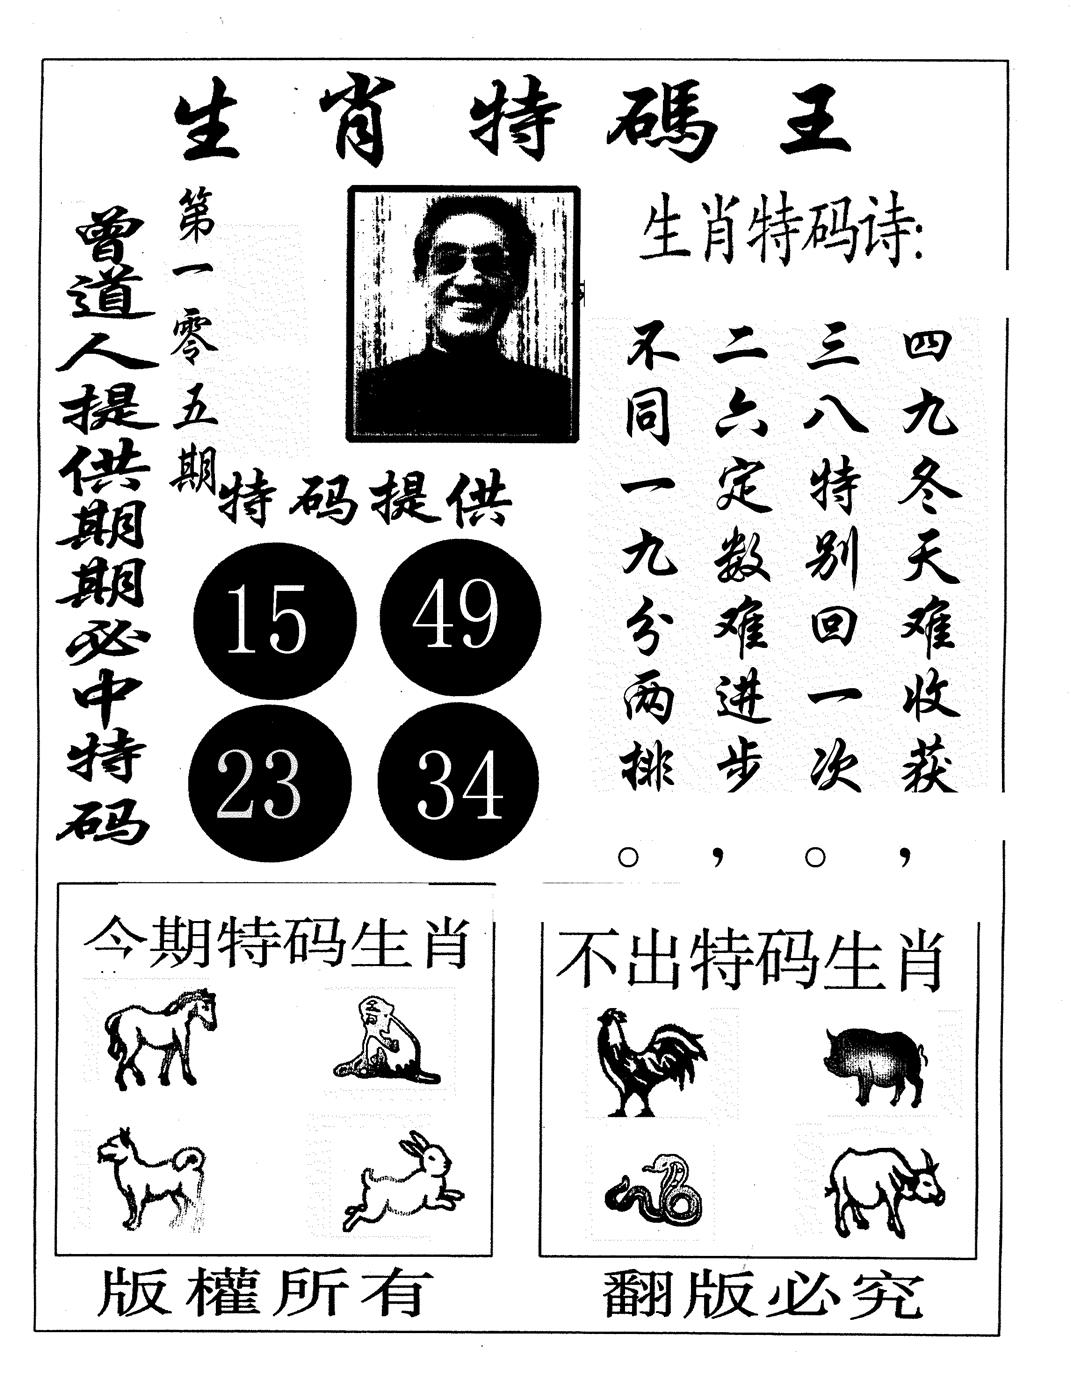 生肖特碼王
曾道人提供期期必中特码
第一零五期
生肖特码诗:
四九冬天难收获，
三八特别回一次。
二六定数难进步，
不同一九分两排。
特码提供
15 49
23 34
今期特码生肖
不出特码生肖
版權所有
翻版必究